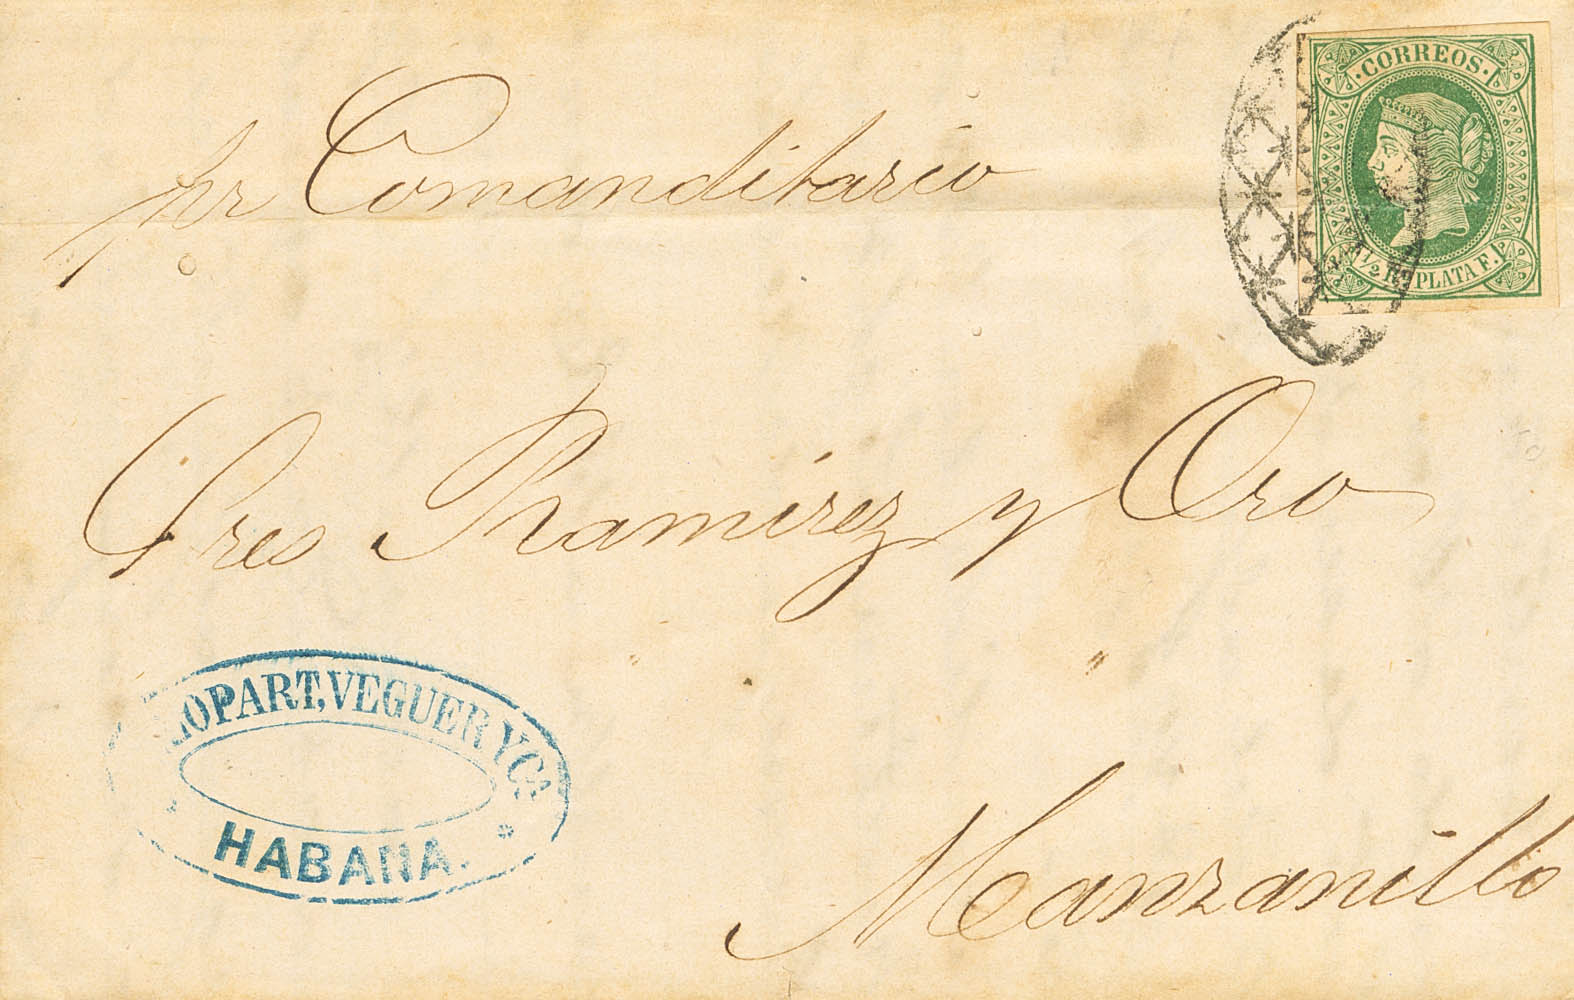 CORREOS
1/2 RL PLATA F.
pr Comanditario
Sres Ramirez y Oro
LOPART, VEGUER Y Cª
HABANA.
Manzanillo